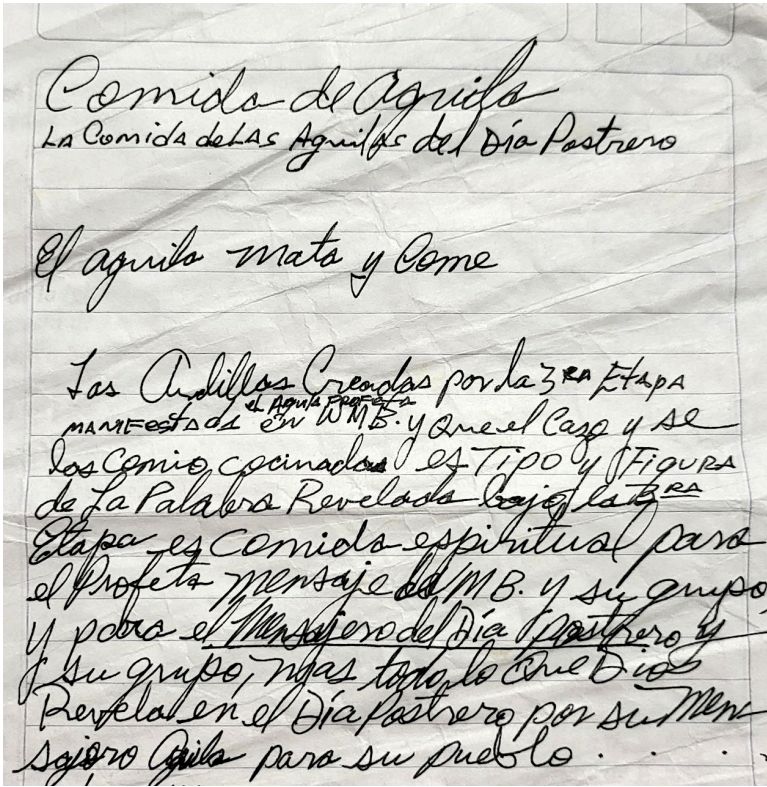 Comida de aguila
LA Comida de LAS Aguilas del Día Postrero
El aguila mata y Come
Las Ardillas Creadas por la 3RA Etapa
el AguilA PROFETA
MANIFESTADA en WMB. y que el Cazo y se
las Comio cocinadas es Tipo y FIGURA
de La Palabra Revelada bajo la 3RA
Etapa es comida espiritual para
el Profeta mensajero WMB. y su grupo
y para el Mensajero del Día postrero y
su grupo, mas todo lo que Dios
Revela en el Día Postrero por su Men
sajero Aguila para su pueblo . . . .